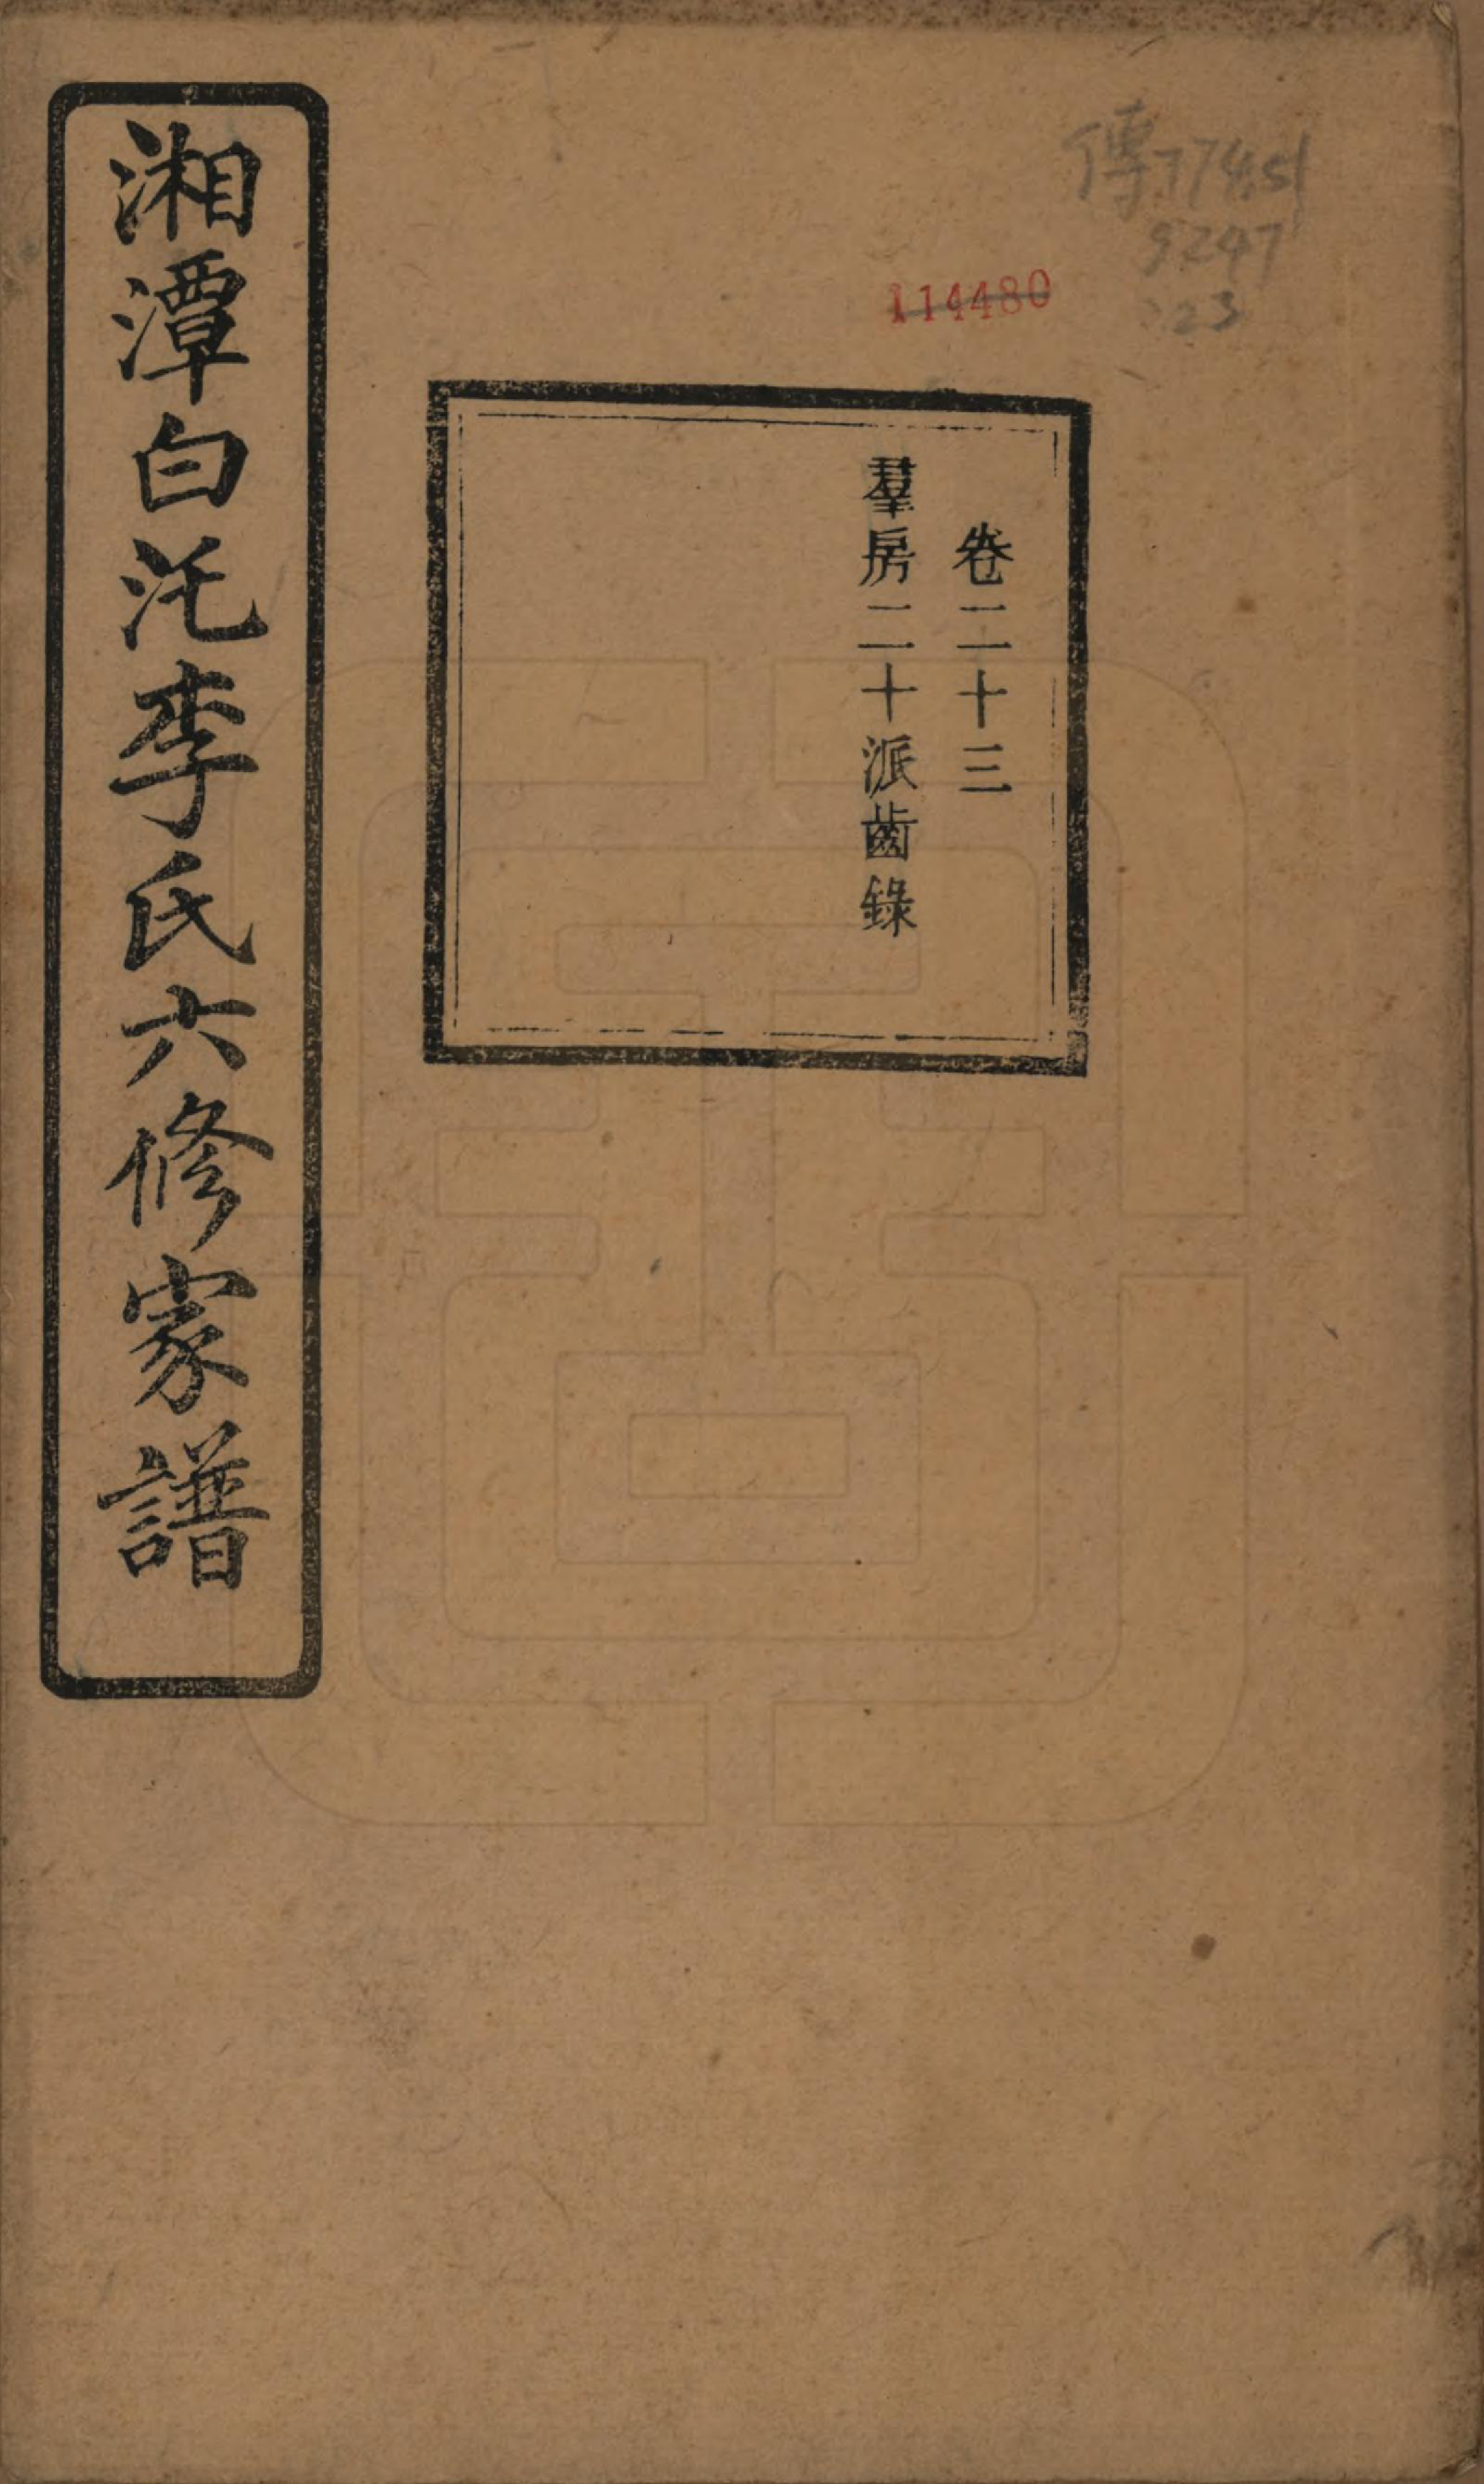 傳77451
9247
:23
114480
卷二十三
羣房二十派齒錄
湘潭白汑李氏六修家譜